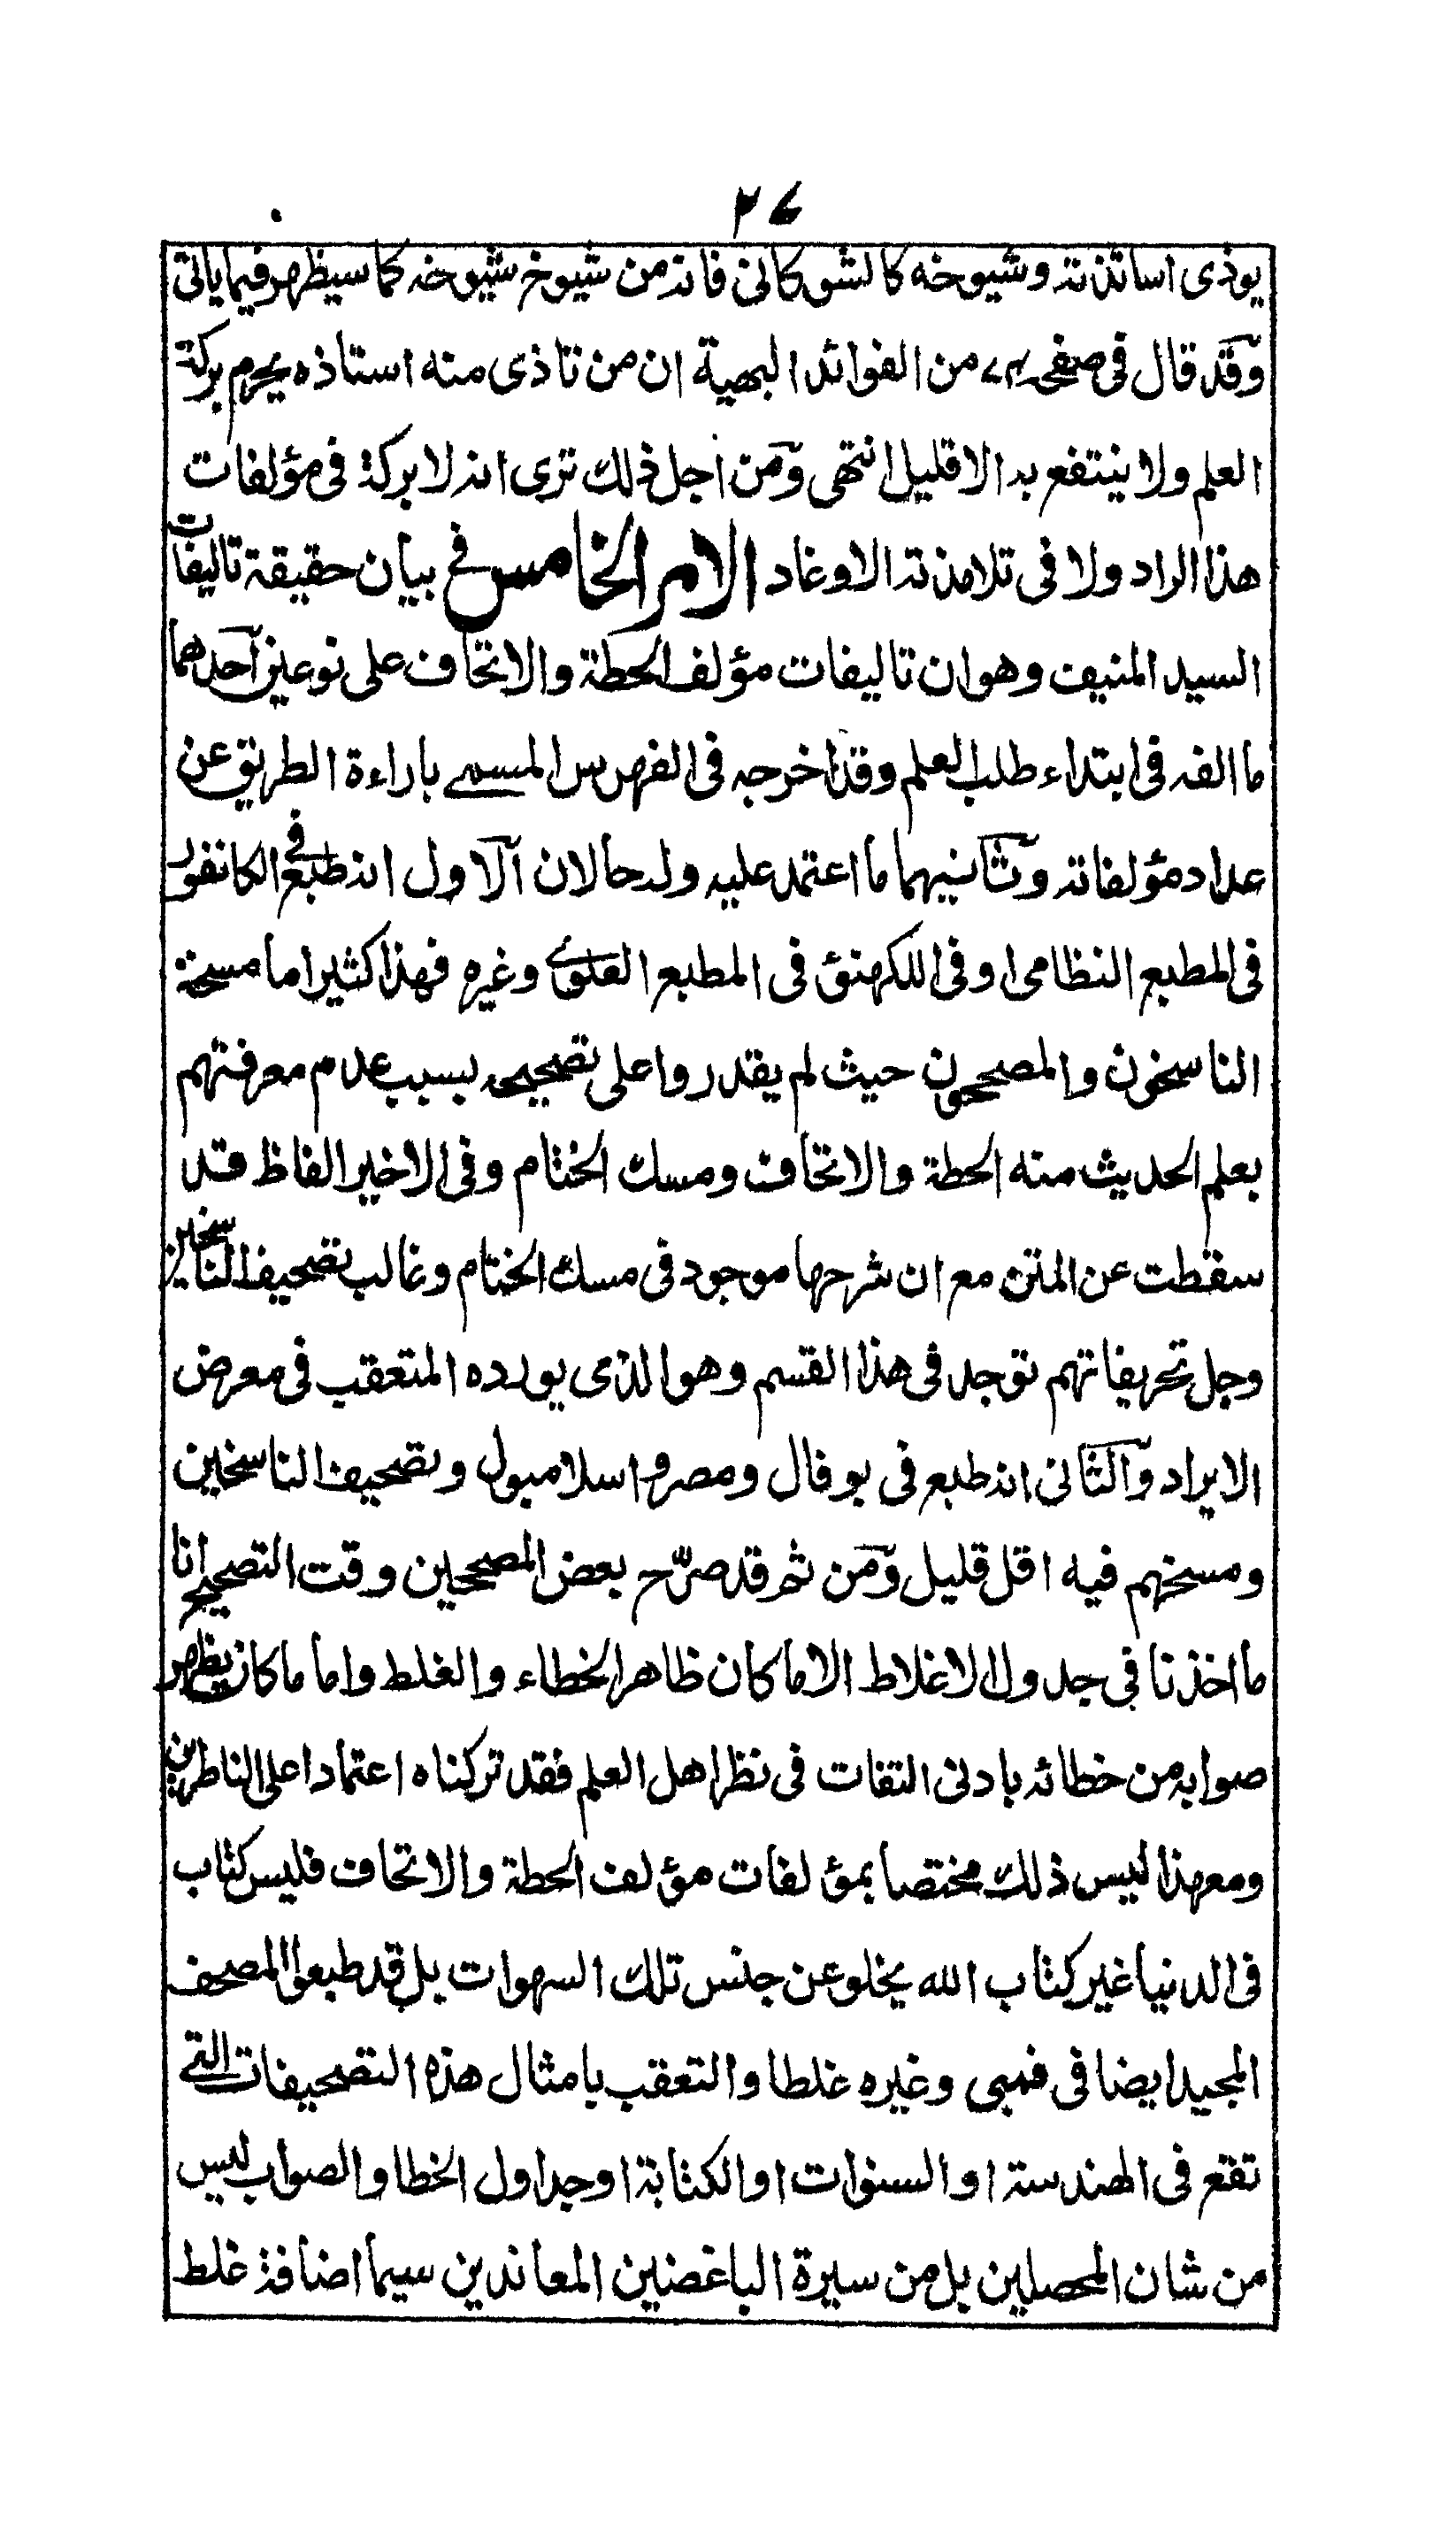 ٢٤
يوذى اساتذته وشيوخه كالشوكانى فانه من شيوخ شيوخه كما سيظهر فيما ياتى
وقد قال فى صفحه من الفوائد البهية ان من تاذى منه استاذه يحرم بركة
العلم ولا ينتفع به الا قليل انتهى ومن اجل ذلك ترى انه لا بركة فى مؤلفات
هذا الراد ولا فى تلامذته الاوغاد الامر الخامس فى بيان حقيقة تاليفات
السيد المنيف وهو ان تاليفات مؤلف الحطة والاتحاف على نوعين احدهما
ما الفه فى ابتداء طلب العلم وقد اخرجه فى الفهرس المسمى باراءة الطريق عن
عداد مؤلفاته وثانيهما ما اعتمد عليه وله حالان الاول انه طبع فى الكانفور
فى المطبع النظامى او فى اللكهنئو فى المطبع العلوى وغيره فهذا كثيرا ما مسخه
الناسخون والمصححون حيث لم يقدروا على تصحيحه بسبب عدم معرفتهم
بعلم الحديث منه الحطة والاتحاف ومسك الختام وفى الاخير الفاظ قد
سقطت عن المتن مع ان شرحها موجود فى مسك الختام وغالب تصحيف الناسخين
وجل تحريفاتهم توجد فى هذا القسم وهو الذى يورده المتعقب فى معرض
الايراد والثانى انه طبع فى بوفال ومصر واسلامبول وتصحيف الناسخين
ومسخهم فيه اقل قليل ومن ثم قد صرّح بعض المصححين وقت التصحيح انا
ما اخذنا فى جدول الاغلاط الا ما كان ظاهر الخطاء والغلط واما ما كان يظهر
صوابه من خطائه بادنى التفات فى نظر اهل العلم فقد تركناه اعتمادا على الناظرين
ومعهذا ليس ذلك مختصا بمؤلفات مؤلف الحطة والاتحاف فليس كتاب
فى الدنيا غير كتاب الله يخلو عن جنس تلك السهوات بل قد طبعوا المصحف
المجيد ايضا فى فمبى وغيره غلطا والتعقب بامثال هذه التصحيفات التى
تقع فى الهندسة او السنوات او الكتابة او جداول الخطا والصواب ليس
من شان المحصلين بل من سيرة الباغضين المعاندين سيما اضافة غلط